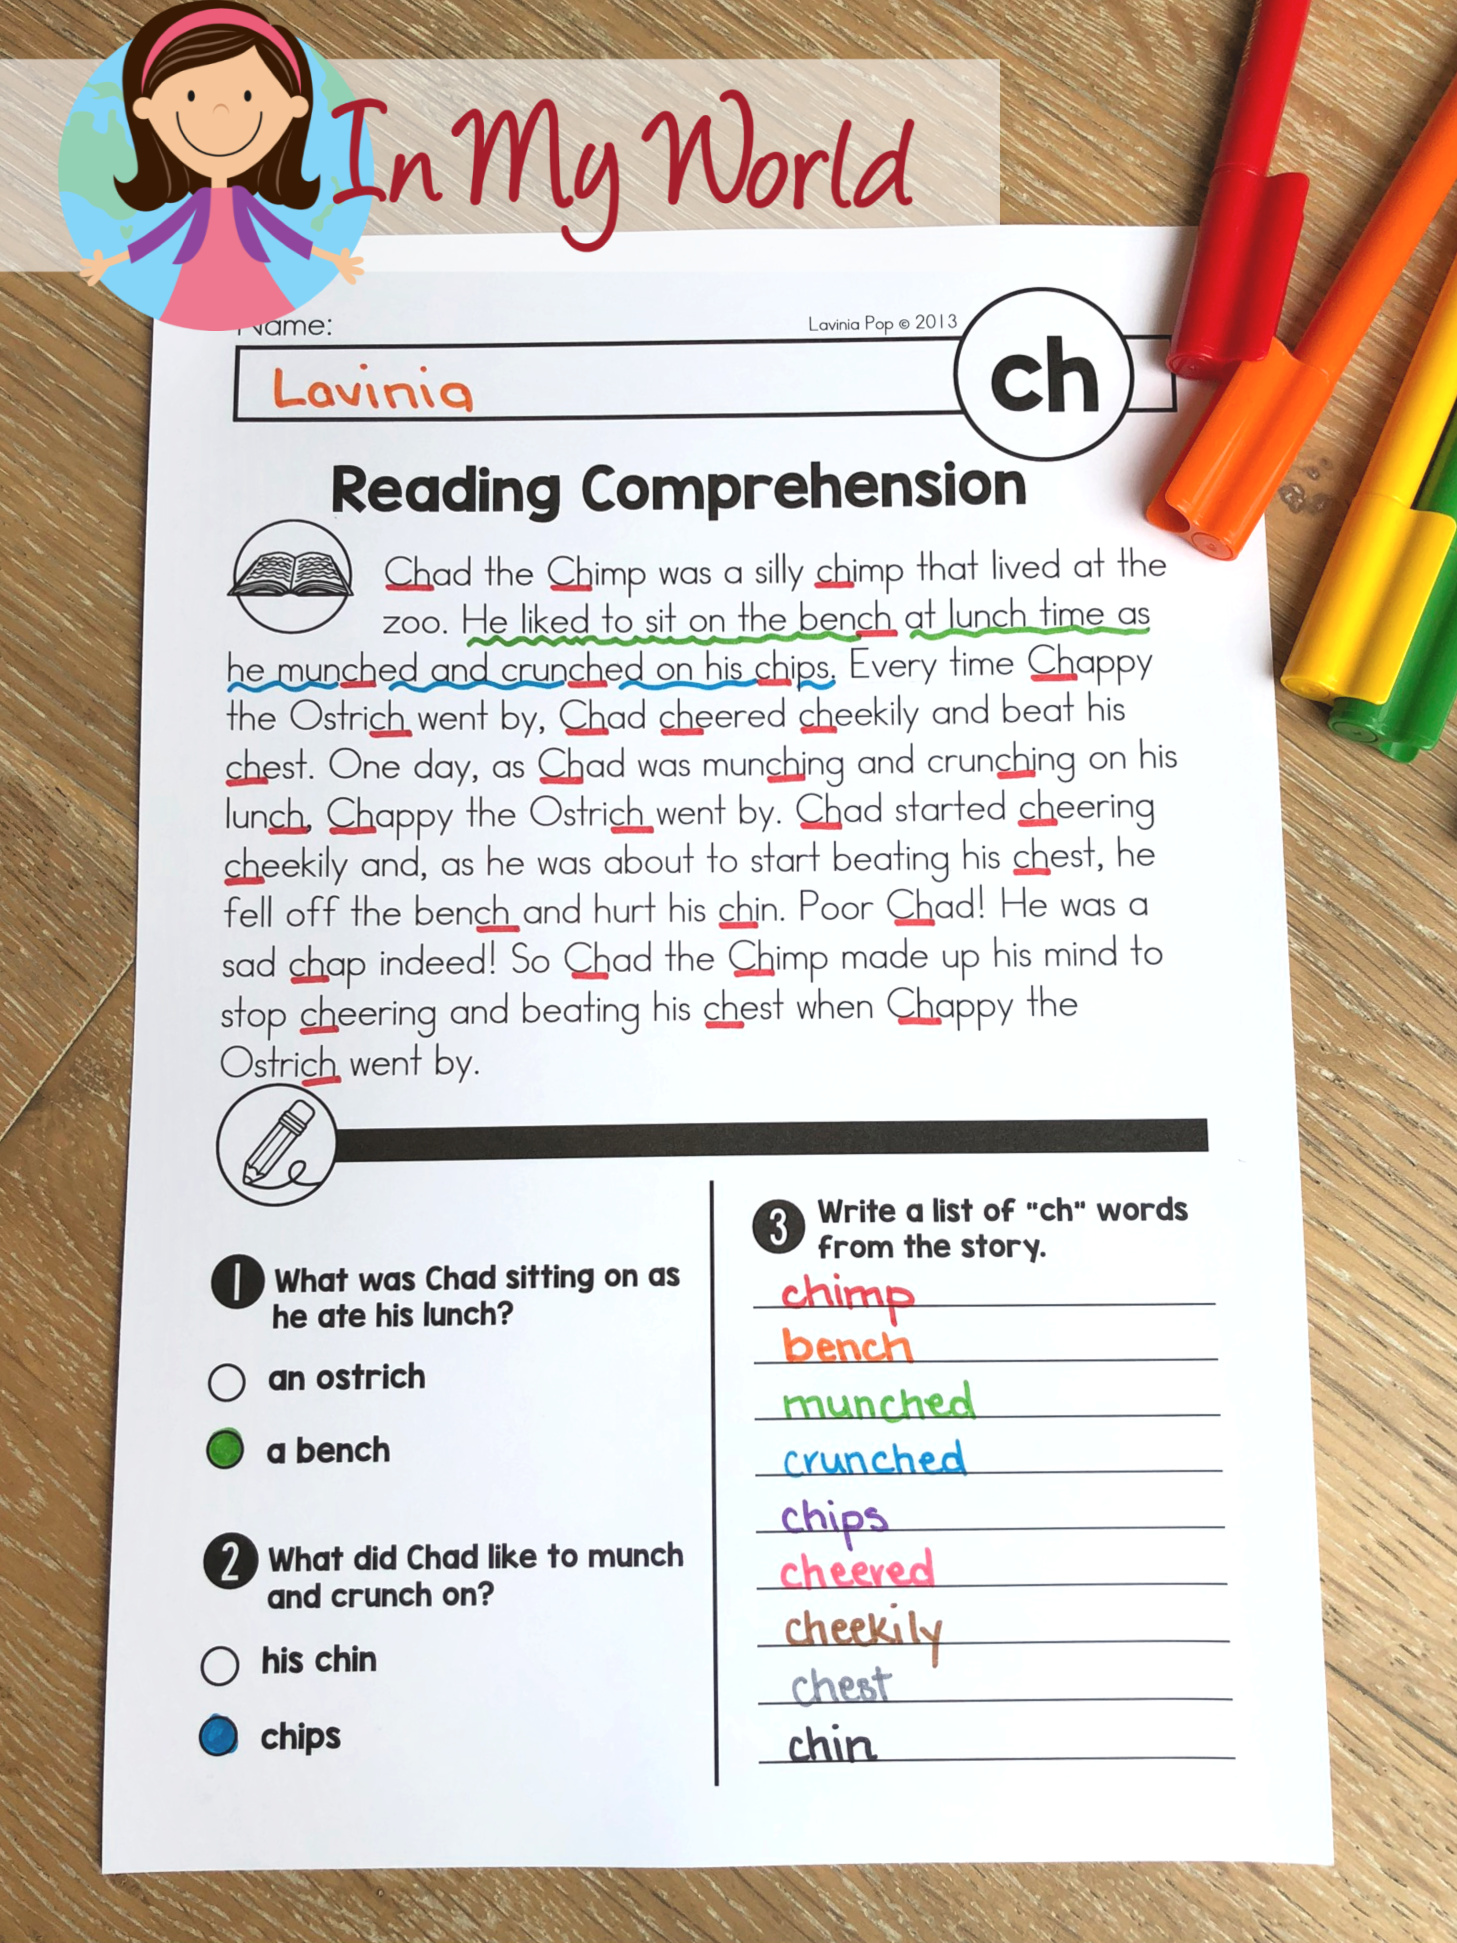 In My World
Name:
Lavinia Pop © 2013
Lavinia
ch
Reading Comprehension
Chad the Chimp was a silly chimp that lived at the
zoo. He liked to sit on the bench at lunch time as
he munched and crunched on his chips. Every time Chappy
the Ostrich went by, Chad cheered cheekily and beat his
chest. One day, as Chad was munching and crunching on his
lunch, Chappy the Ostrich went by. Chad started cheering
cheekily and, as he was about to start beating his chest, he
fell off the bench and hurt his chin. Poor Chad! He was a
sad chap indeed! So Chad the Chimp made up his mind to
stop cheering and beating his chest when Chappy the
Ostrich went by.
1 What was Chad sitting on as
he ate his lunch?
an ostrich
a bench
2 What did Chad like to munch
and crunch on?
his chin
chips
3 Write a list of "ch" words
from the story.
chimp
bench
munched
crunched
chips
cheered
cheekily
chest
chin